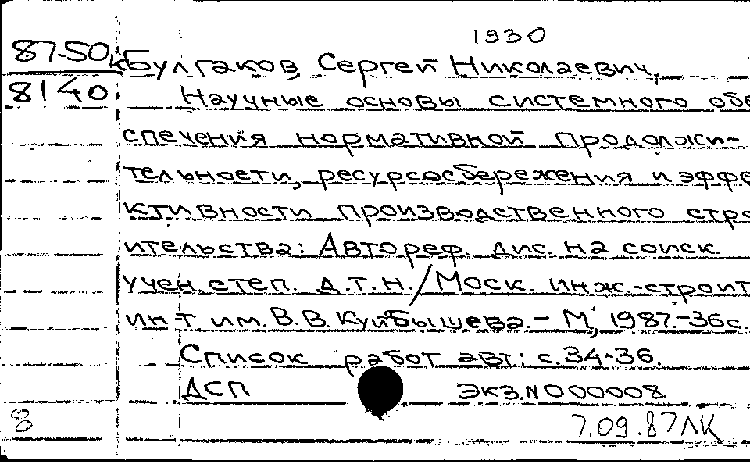 1930
87-50к Булгаков, Сергей Николаевич,
8140 Научные основы системного обе
спечения нормативной продолжи-
тельности, ресурсосбережения и эффе
ктивности производственного стро
ительства: Автореф. дис. на соиск
учен. степ. д.т.н. / Моск. инж.-строит
ин-т им. В.В. Куйбышева. - М., 1987. - 36с.
Список работ авт.: с. 34-36.
ДСП Экз. N 000008
8 7.09.87 ЛК